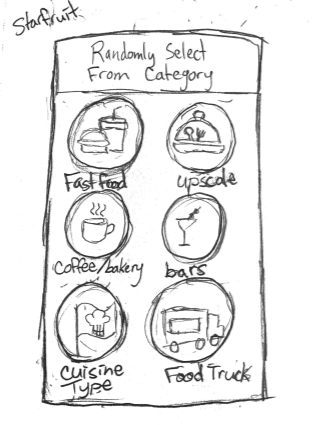 Starfruit
Randomly Select
From Category
Fast food
upscale
coffee/bakery
bars
cuisine
Type
Food Truck